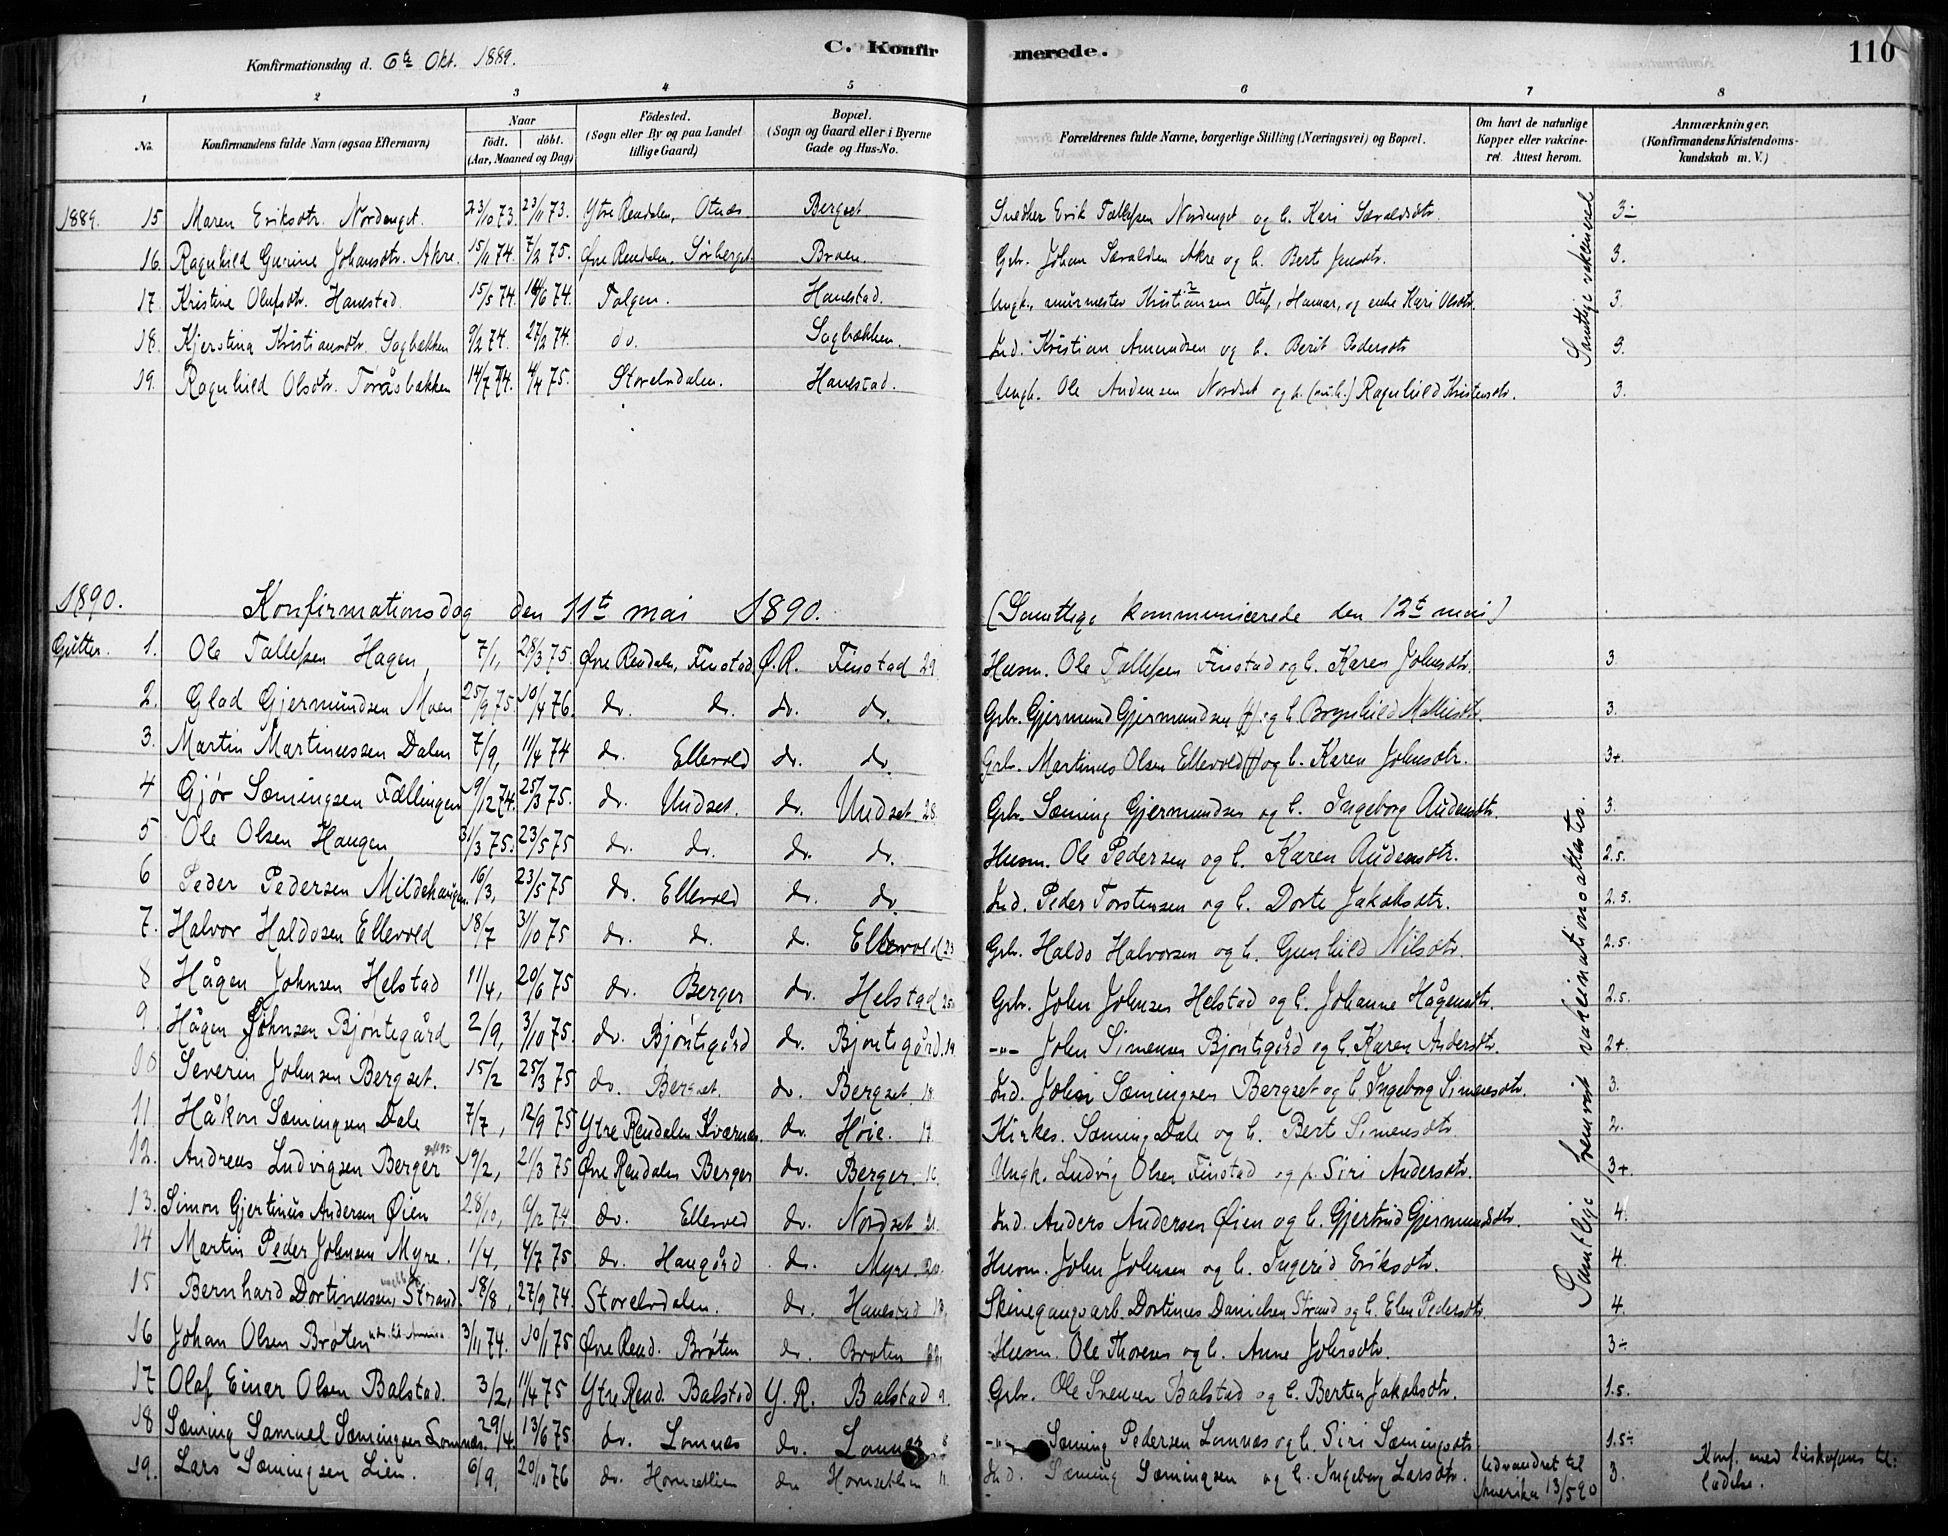 Konfirmationsdag d. 6te Okt. 1889. C. Konfirmerede. 110
1 2 3 4 5 6 7 8
No. Konfirmandens fulde Navn (ogsaa Efternavn) Naar født. døbt. (Aar, Maaned og Dag) Fødested. (Sogn eller By og paa Landet tillige Gaard) Bopæl. (Sogn og Gaard eller i Byerne Gade og Hus-No. Forældrenes fulde Navne, borgerlige Stilling (Næringsvei) og Bopæl. Om havt de naturlige Kopper eller vakcineret. Attest herom. Anmærkninger. (Konfirmandens Kristendomskundskab m. V.)
1889. 15 Maren Eriksdtr. Nordenget. 23/10 73. 23/11 73. Ytre Rendalen, Otnes Bergset Snedker Erik Tollefsen Nordenget og h. Kari 3-
16. Ragnhild Gurine Johansdtr. Akre. 15/11 74. 7/2 75. Øvre Rendalen, Sørberget Broen. Grbr. Johan Akre og h. Berit Jensdtr. 3.
17. Kristine Olufsdtr. Hanestad. 15/5 74. 14/6 74. Tolgen. Hanestad. Ungk., murmester Kristiansen Oluf, Hamar, og enke Kari Olsdtr. 3.
18. Kjerstina Kristiansdtr. Sagbækken 9/2 74. 27/2 74. do. Sagbækken. Ind. Kristian Amundsen og h. Berit Pedersdtr 3.
19. Ragnhild Olsdtr. Toråsbækken 14/7 74. 4/4 75. Storelvdalen. Hanestad. Ungk. Ole Andersen Nordset og p. Ragnhild Kristensdtr. 3.
Samtlige vakcinered
1890. Konfirmationsdag den 11te mai 1890. (Samtlige kommunicerede den 12te mai)
Gutter. 1. Ole Tollefsen Hagen, 7/1, 28/3 75. Øvre Rendalen, Finstad Ø.R. Finstad 29. Husm. Ole Tollefsen Finstad og h. Karen Johnsdtr. 3.
2. Glad Gjermundsen Moen 25/9 75. 10/4 76. dr. dr. dr. dr. Grbr. Gjermund Gjermundsen (†) og h. 3.
3. Martin Martinussen Dalen 7/9, 11/4 74 dr. Ellevold dr. dr. Grbr. Martinus Olsen Ellevold (†) og h. Karen Johnsdtr. 3+.
4 Gjør Sæmingsen Fællingen 9/12 74. 25/3 75. dr. Undset. dr. Undset 28. Grbr. Sæming Gjermundsen og h. Ingeborg Audensdtr. 3.
5 Ole Olsen Haugen 31/3 75. 23/5 75 dr. dr. dr. dr. Husm. Ole Pedersen og h. Karen Audensdtr. 2.5.
6 Peder Pedersen Mildehaugen. 16/3, 23/5 75 dr. Ellevold dr. dr. Ind. Peder Torstensen og h. Dorte Jakobsdtr. 2.5.
7. Halvor Haldosen Ellevold 18/7 3/10 75 dr. dr. dr. Ellevold 23 Grbr. Haldo Halvorsen og h. Gunhild Nilsdtr. 2.5.
8 Hågen Johnsen Helstad 11/4, 20/6 75 dr. Berger dr. Helstad 25. Grbr. John Johnsen Helstad og h. Johanne Hågensdtr. 2.5.
9. Hågen Johnsen Bjøntegård 2/9, 3/10 75. dr. Bjøntegård dr. Bjøntegård. 19 -"- John Simensen Bjøntegård og h. Karen Andersdtr. 2+.
10 Severin Johnsen Bergset. 15/2 25/3 75 dr. Bergset. dr. Bergset 18. Ind. John Sæmingsen Bergset og h. Ingeborg Simensdtr. 3.
11 Håkon Sæmingsen Dale 7/7, 12/9 75 Ytre Rendalen Kværnes. dr. Høie. 17. Kirkes. Sæming Dale og h. Berit Simensdtr 2.
12. Andreas Ludvigsen Berger 19/2, 21/3 75 Øvre Rendalen Berger dr. Berger. 16. Ungk. Ludvig Olsen Finstad og p. Siri Andersdtr. 3+.
13. Simon Gjertinus Andersen Øien 28/10, 9/2 74 dr. Ellevold dr. Nordset 21. Ind. Anders Andersen Øien og h. Gjertrud Gjermundsdtr. 4.
14 Martin Peder Johnsen Myre. 1/4, 4/7 75. dr. Haugård dr. Myre. 20. Husm. John Johnsen og h. Ingerid Eriksdtr. 4.
15 Bernhard Dortinussen Strand. 18/8, 27/9 74. Storelvdalen. dr. Hanestad 13. Skinegangsarb. Dortinus Danielsen Strand og h. Elen Pedersdtr. 4.
16 Johan Olsen Brøten 3/11 74. 10/1 75 Øvre Rend. Brøten dr. Brøten Husm. Ole Thoresen og h. Anne Johnsdtr. 3-
17 Olaf Einar Olsen Balstad. 3/2, 11/4 75 Ytre Rend. Balstad Y. R. Balstad 9. Grbr. Ole Svensen Balstad og h. Jakobsdtr. 1.5.
18 Sæming Samuel Sæmingsen Lomnæs. 29/4. 13/6 75 dr. Lomnæs dr. Lomnæs 8 -"- Sæming Pedersen Lomnæs og h. Siri Sæmingsdtr 1.5-
19. Lars Sæmingsen Lien. 6/9, 20/10 76 dr. Hornsetlien dr. Hornsetlien 11. Ind. Sæming Sæmingsen og h. Ingeborg Larsdtr. Udvandret til Amerika 13/5 90 3. Konf. med biskopens tilladelse.
Samtlige fremvist vakcinationsattester.